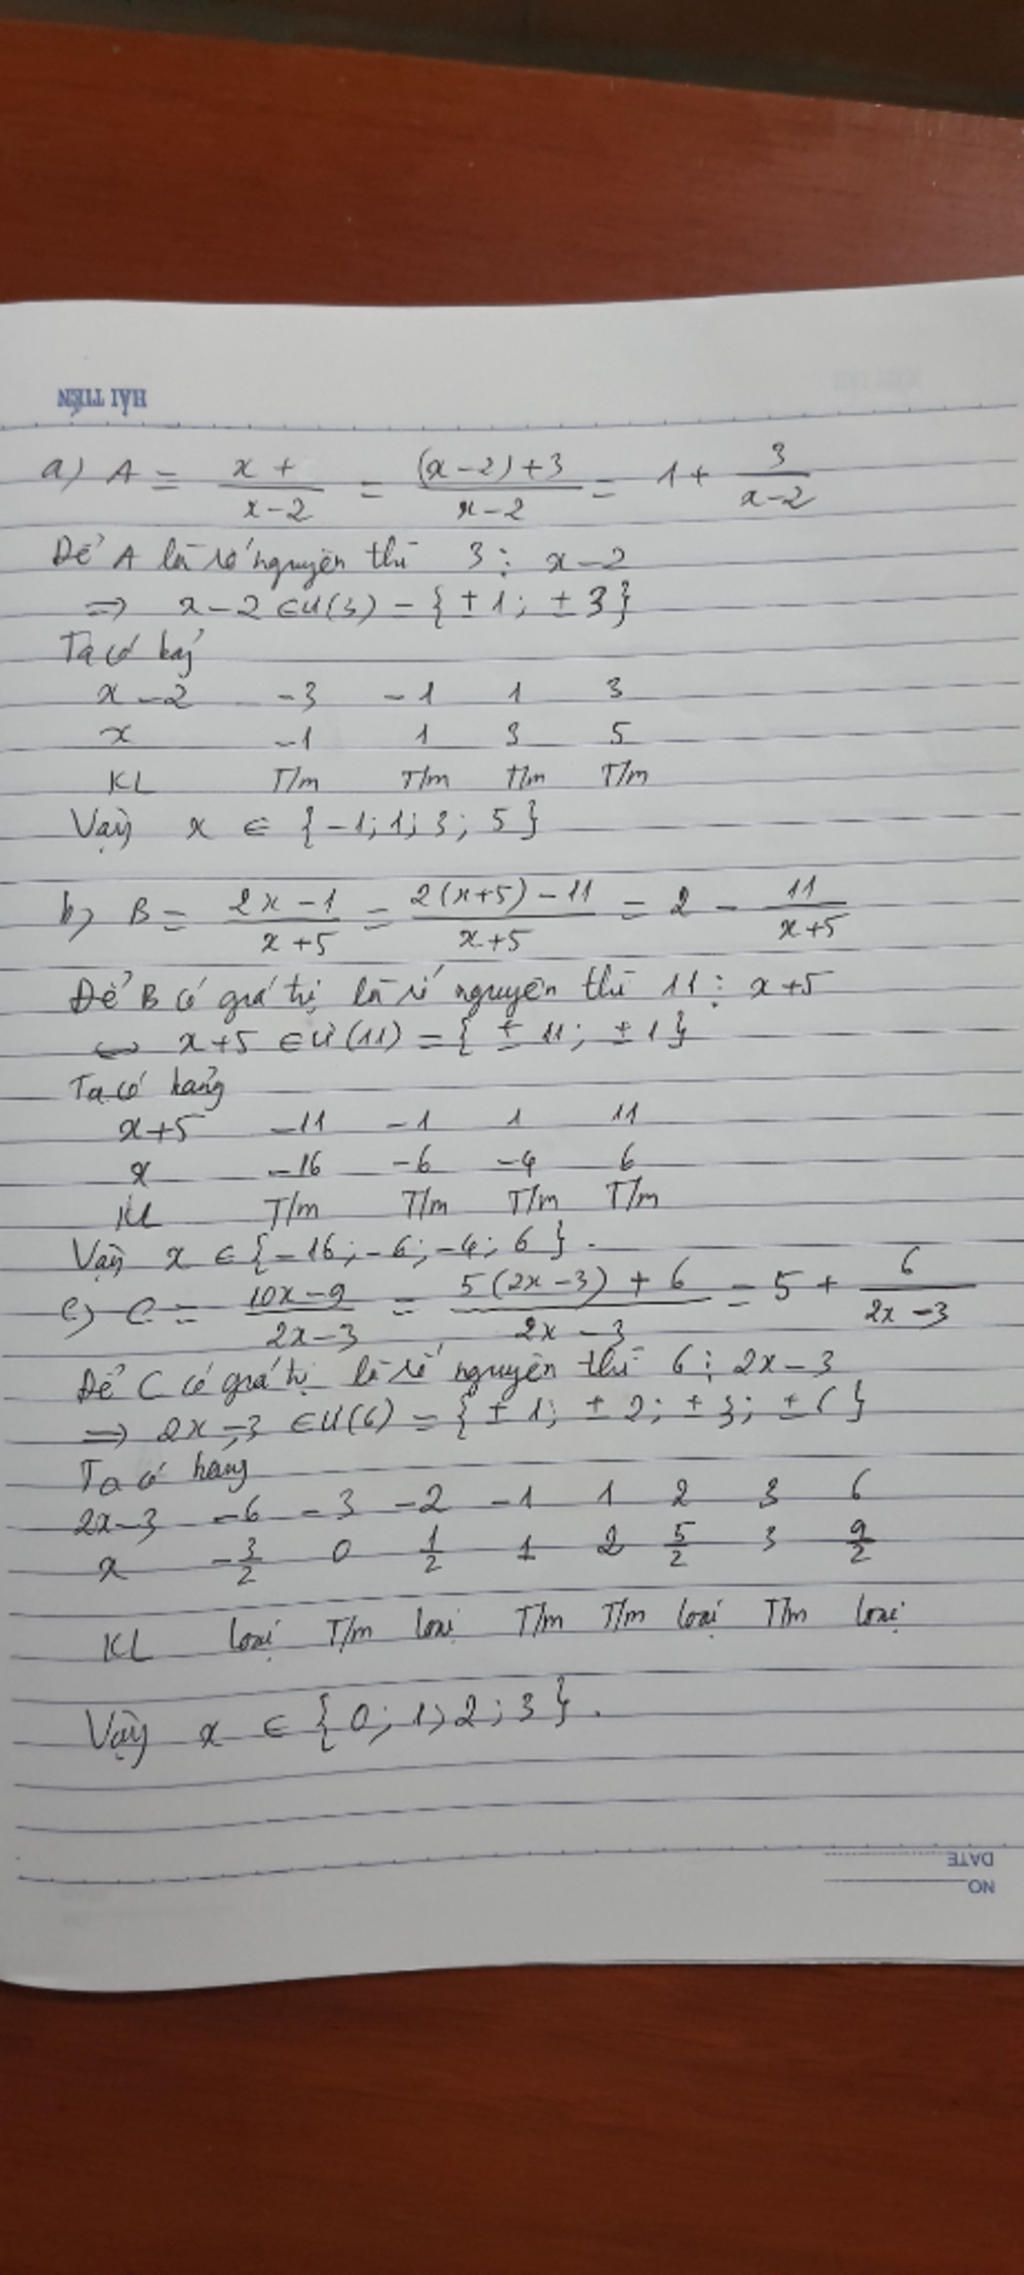 HẢI TIẾN
a) A = x + / x-2 = (x-2)+3 / x-2 = 1 + 3 / x-2
Để A là số nguyên thì 3 ⋮ x-2
⇒ x-2 ∈ Ư(3) = {±1; ±3}
Ta có bả
x-2 -3 -1 1 3
x -1 1 3 5
KL T/m T/m T/m T/m
Vậy x ∈ {-1; 1; 3; 5}
b) B = 2x-1 / x+5 = 2(x+5)-11 / x+5 = 2 - 11 / x+5
Để B có giá trị là số nguyên thì 11 ⋮ x+5
⇔ x+5 ∈ Ư(11) = {±11; ±1}
Ta có bảng
x+5 -11 -1 1 11
x -16 -6 -4 6
KL T/m T/m T/m T/m
Vậy x ∈ {-16; -6; -4; 6}.
c) C = 10x-9 / 2x-3 = 5(2x-3)+6 / 2x-3 = 5 + 6 / 2x-3
Để C có giá trị là số nguyên thì 6 ⋮ 2x-3
⇒ 2x-3 ∈ Ư(6) = {±1; ±2; ±3; ±6}
Ta có bảng
2x-3 -6 -3 -2 -1 1 2 3 6
x -3/2 0 1/2 1 2 5/2 3 9/2
KL loại T/m loại T/m T/m loại T/m loại
Vậy x ∈ {0; 1; 2; 3}.
DATE
NO